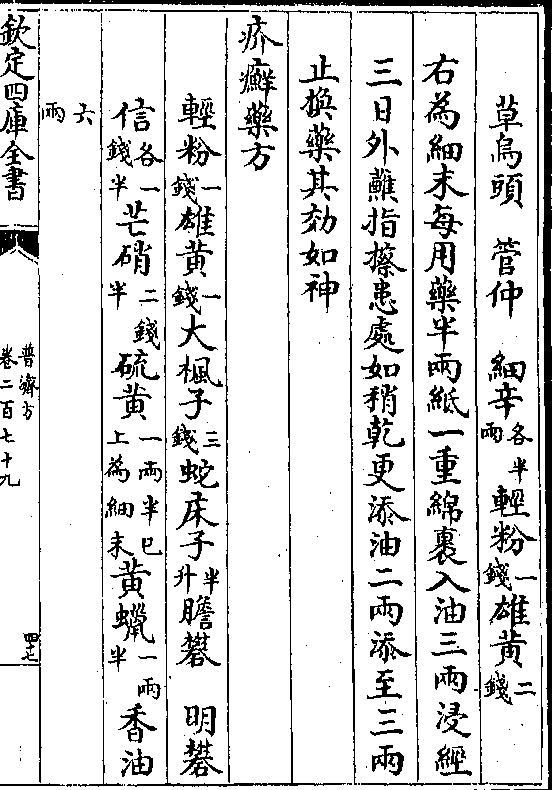 草烏頭　管仲　細辛各半兩輕粉一錢雄黄二錢
右為細末每用藥半兩紙一重綿裹入油三兩浸經
三日外蘸指擦患處如稍乾更添油二兩添至三兩
止換藥其効如神
疥癬藥方
輕粉一錢雄黄一錢大楓子三錢蛇床子半升膽礬　明礬
信各一錢半芒硝二錢半硫黄一兩半已上為細末黄蠟一兩半香油
六兩
欽定四庫全書
普濟方
卷二百七十九
四七